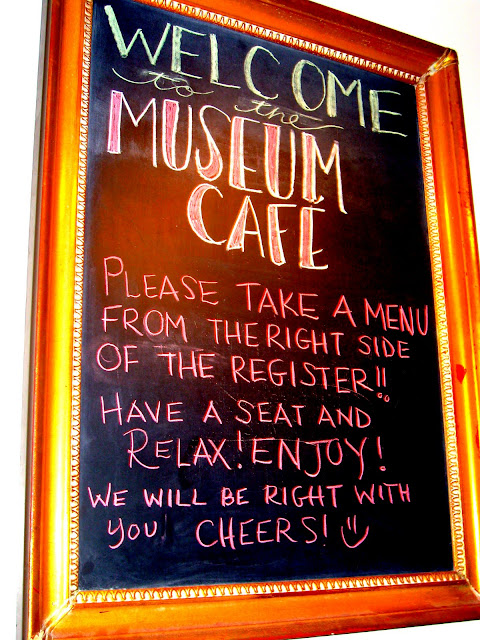 WELCOME
to the
MUSEUM
CAFE
PLEASE TAKE A MENU
FROM THE RIGHT SIDE
OF THE REGISTER!!
HAVE A SEAT AND
RELAX! ENJOY!
WE WILL BE RIGHT WITH
YOU! CHEERS!